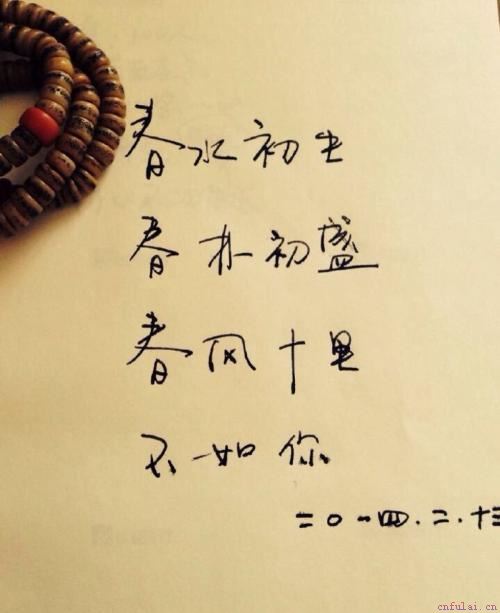 春水初生
春林初盛
春风十里
不如你
二〇一四.二.十三
cnfulai.cn